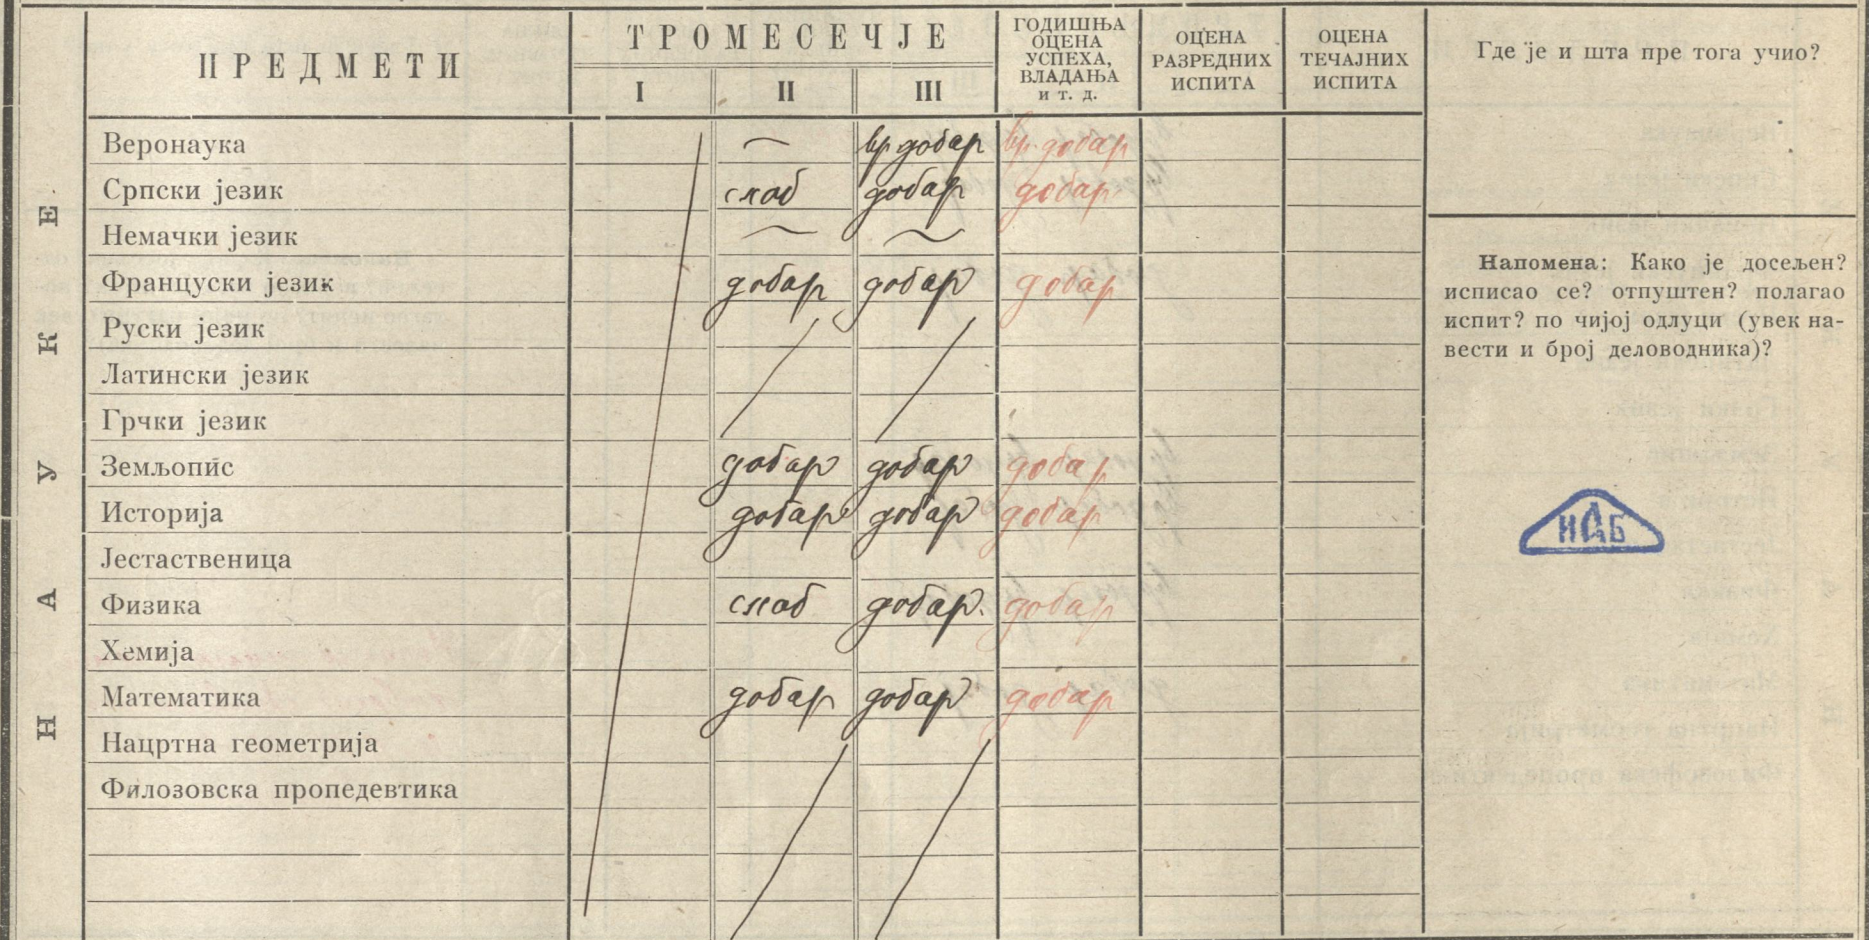 ПРЕДМЕТИ
ТРОМЕСЕЧЈЕ
I II III
ГОДИШЊА
ОЦЕНА
УСПЕХА,
ВЛАДАЊА
и т. д.
ОЦЕНА
РАЗРЕДНИХ
ИСПИТА
ОЦЕНА
ТЕЧАЈНИХ
ИСПИТА
Где је и шта пре тога учио?
НАУКЕ
Веронаука — вр. добар вр. добар
Српски језик слаб добар добар
Немачки језик — —
Француски језик добар добар добар
Руски језик
Латински језик
Грчки језик
Земљопис добар добар добар
Историја добар добар добар
Јестаственица
Физика слаб добар. добар
Хемија
Математика добар добар добар
Нацртна геометрија
Филозовска пропедевтика
Напомена: Како је досељен?
исписао се? отпуштен? полагао
испит? по чијој одлуци (увек на-
вести и број деловодника)?
ИАБ